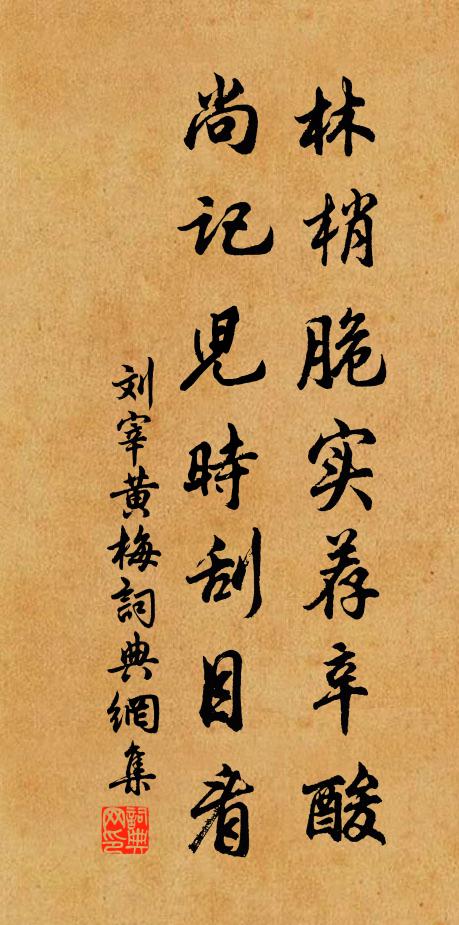 林梢脆实荐辛酸
尚记儿時刮目看
刘宰黄梅詞典網集
詞典网印